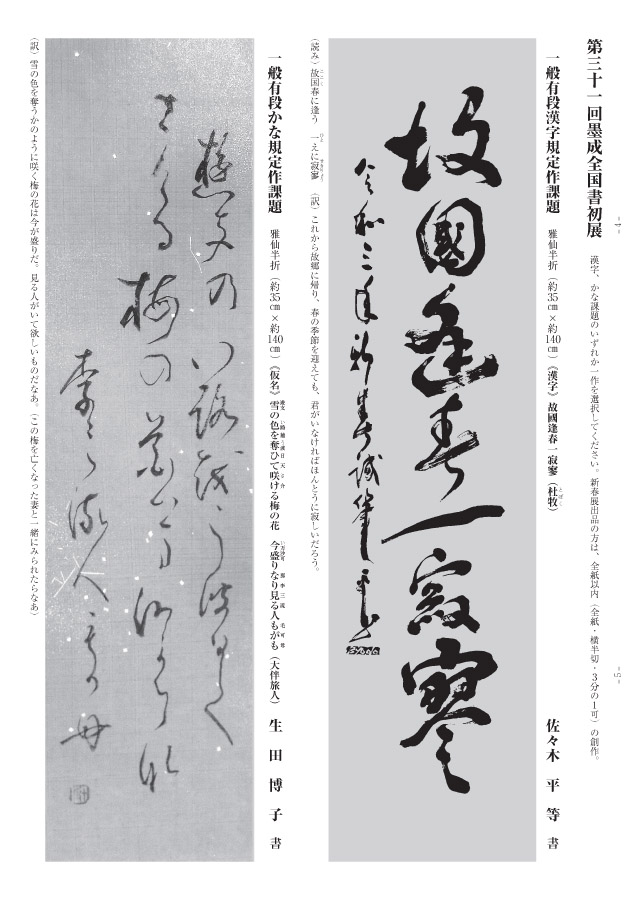 第三十一回墨成全国書初展　漢字、かな課題のいずれか一作を選択してください。新春展出品の方は、全紙以内（全紙・横半切・3分の1可）の創作。
一般有段漢字規定作課題　雅仙半折（約35㎝×約140㎝）《漢字》故國逢春一寂寥（杜牧）　佐々木　平　等　書
故國逢春一寂寥
令和三年新春
（読み）故国春に逢う　一えに寂寥　（訳）これから故郷に帰り、春の季節を迎えても、君がいなければほんとうに寂しいだろう。
一般有段かな規定作課題　雅仙半折（約35㎝×約140㎝）《仮名》雪の色を奪ひて咲ける梅の花　今盛りなり見る人もがも（大伴旅人）　生　田　博　子　書
（訳）雪の色を奪うかのように咲く梅の花は今が盛りだ。見る人がいて欲しいものだなあ。（この梅を亡くなった妻と一緒にみられたらなあ）